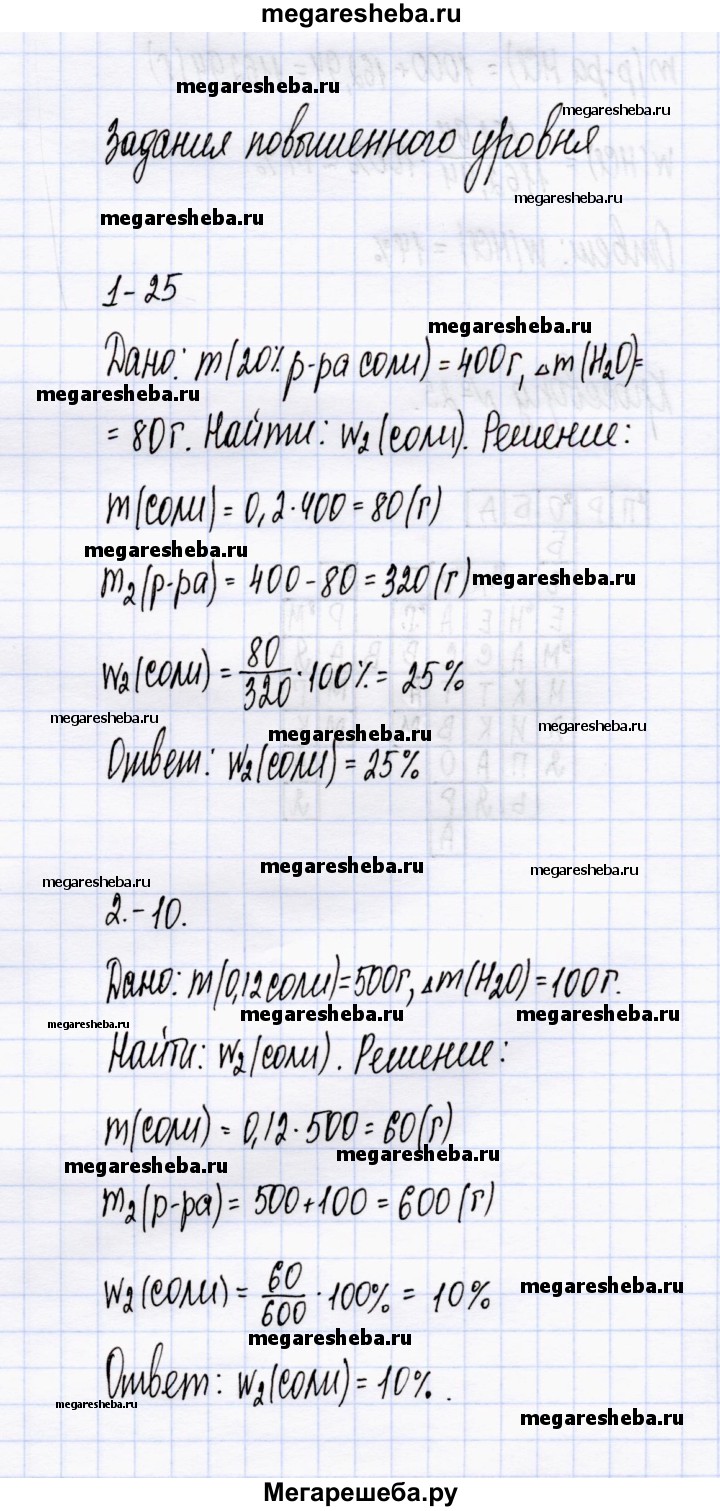 megaresheba.ru
megaresheba.ru
megaresheba.ru
Задания повышенного уровня
megaresheba.ru
megaresheba.ru
1-25
megaresheba.ru
Дано: m(20% р-ра соли) = 400г, △m(H₂O)=
megaresheba.ru
megaresheba.ru
= 80г. Найти: w₂(соли). Решение:
m(соли) = 0,2·400 = 80(г)
megaresheba.ru
m₂(р-ра) = 400-80 = 320(г)
megaresheba.ru
w₂(соли) = 80/320·100% = 25%
megaresheba.ru
megaresheba.ru
megaresheba.ru
Ответ: w₂(соли) = 25%
megaresheba.ru
megaresheba.ru
megaresheba.ru
2.-10.
Дано: m(0,12 соли)=500г, △m(H₂O)=100г.
megaresheba.ru
megaresheba.ru
megaresheba.ru
Найти: w₂(соли). Решение:
m(соли) = 0,12·500 = 60(г)
megaresheba.ru
megaresheba.ru
m₂(р-ра) = 500+100 = 600(г)
w₂(соли) = 60/600·100% = 10%
megaresheba.ru
megaresheba.ru
Ответ: w₂(соли) = 10%.
megaresheba.ru
megaresheba.ru
Мегарешеба.ру